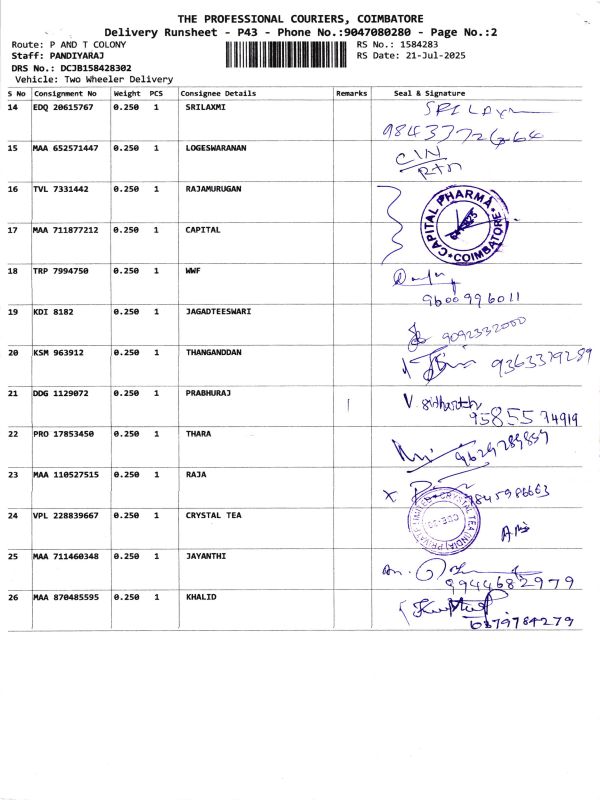 THE PROFESSIONAL COURIERS, COIMBATORE
Delivery Runsheet - P43 - Phone No.:9047080280 - Page No.:2
Route: P AND T COLONY RS No.: 1584283
Staff: PANDIYARAJ RS Date: 21-Jul-2025
DRS No.: DCJB158428302
Vehicle: Two Wheeler Delivery
S No Consignment No Weight PCS Consignee Details Remarks Seal & Signature
14 EDQ 20615767 0.250 1 SRILAXMI
15 MAA 652571447 0.250 1 LOGESWARANAN
C/N
Rtn
16 TVL 7331442 0.250 1 RAJAMURUGAN
CAPITAL PHARMA COIMBATORE
17 MAA 711877212 0.250 1 CAPITAL
18 TRP 7994750 0.250 1 WWF
9600996011
19 KDI 8182 0.250 1 JAGADTEESWARI
9092332000
20 KSM 963912 0.250 1 THANGANDDAN
9363379289
21 DDG 1129072 0.250 1 PRABHURAJ
V. Sidharth
9585574919
22 PRO 17853450 0.250 1 THARA
9629789859
23 MAA 110527515 0.250 1 RAJA
9845986663
24 VPL 228839667 0.250 1 CRYSTAL TEA
CRYSTAL TEA (INDIA) PRIVATE LIMITED
25 MAA 711460348 0.250 1 JAYANTHI
9944682979
26 MAA 870485595 0.250 1 KHALID
6379784279